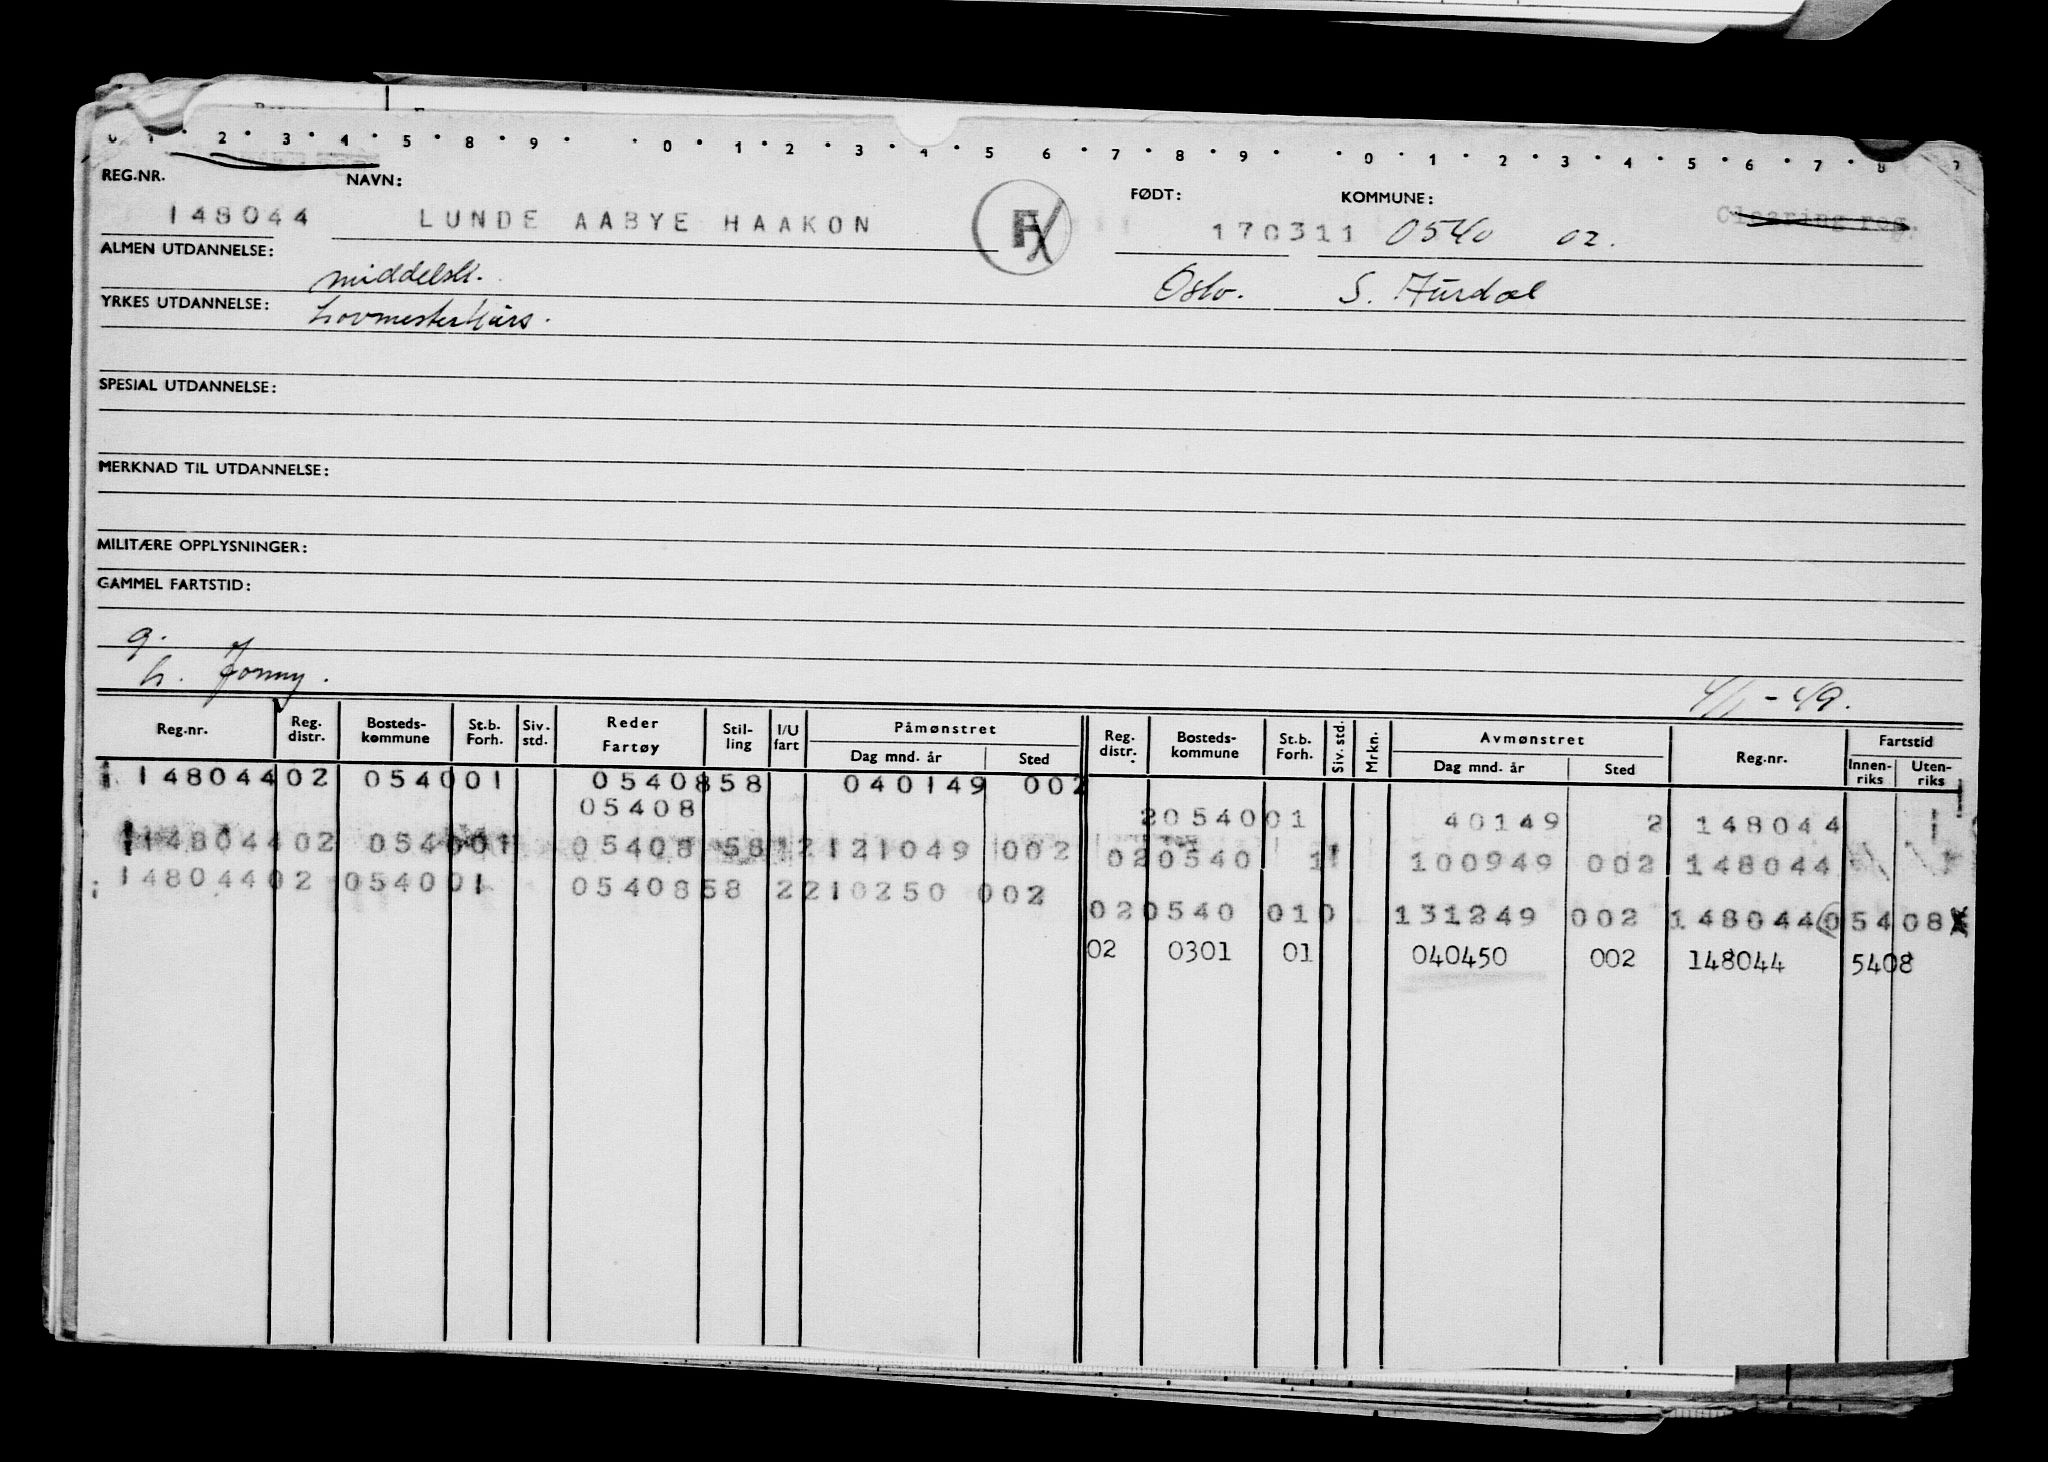 0 1 2 3 4 5 8 9 0 1 2 3 4 5 6 7 8 9 0 1 2 3 4 5 6 7 8
REG.NR. NAVN: FØDT: KOMMUNE:
148044 LUNDE AABYE HAAKON F 170311 0540 02. Clearing reg.
ALMEN UTDANNELSE: middelsk. Oslo. S. Aurdal
YRKES UTDANNELSE: hovmesterkurs.
SPESIAL UTDANNELSE:
MERKNAD TIL UTDANNELSE:
MILITÆRE OPPLYSNINGER:
GAMMEL FARTSTID:
g.
h. Jonny. 4/1-49.
Reg.nr. Reg. distr. Bosteds-kommune St.b. Forh. Siv. std. Reder Fartøy Stil-ling I/U fart Påmønstret Dag mnd. år Sted Reg. distr. Bosteds-kommune St.b. Forh. Siv. std. Mrkn. Avmønstret Dag mnd. år Sted Reg.nr. Fartstid Innen-riks Uten-riks
148044 02 0540 01 05408 58 040149 002
05408 2 0540 01 40149 2 148044
148044 02 0540 01 05408 58 12 121049 002 02 0540 1 100949 002 148044
148044 02 0540 01 05408 58 2 210250 002
02 0540 010 131249 002 148044 05408
02 0301 01 040450 002 148044 5408